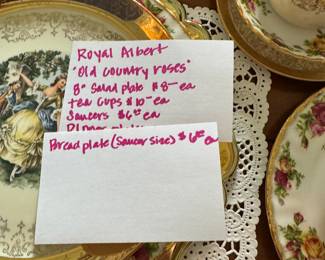 Royal Albert
"Old Country roses"
8" Salad plate $8- ea
tea cups $10- ea
Saucers $6.00 ea
Bread plate (Saucer size) $6.00 ea